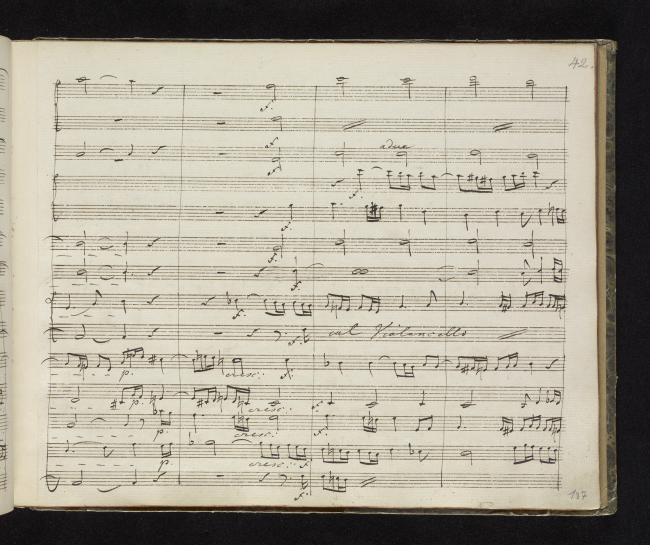 42.
f.
f.
a due
f.
f.
f.
f.
f.
f.
f.
col Violoncello
p. cresc: f.
p. cresc: f
p. cresc: f.
p. cresc: f.
f.
187